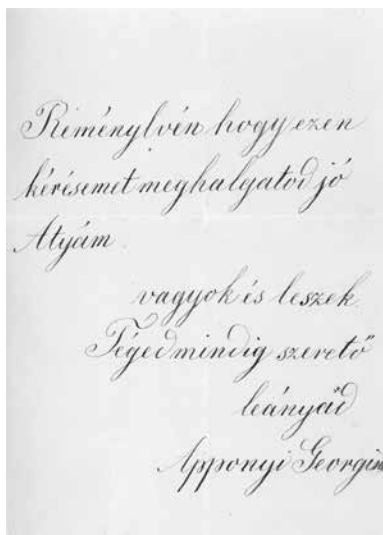 Reménylvén hogy ezen
kérésemet meghalgatod jó
Atyám
vagyok és leszek
Téged mindig szerető
leányád
Apponyi Georgina